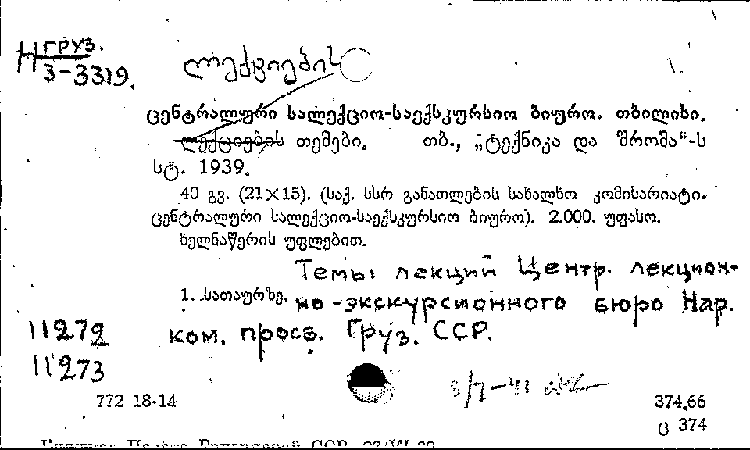 Н груз.
3-3319.
ლექციების
ცენტრალური სალექციო-საექსკურსიო ბიურო. თბილისი.
ლექციების თემები. თბ., „ტექნიკა და შრომა“-ს
სტ. 1939.
40 გვ. (21×15). (საქ. სსრ განათლების სახალხო კომისარიატი.
ცენტრალური სალექციო-საექსკურსიო ბიურო). 2.000. უფასო.
ხელნაწერის უფლებით.
Темы лекций Центр. лекцион-
1. სათაურზე. но-экскурсионного бюро Нар.
ком. просв. Груз. ССР.
11272
11273
772 18-14
374.66
ც 374